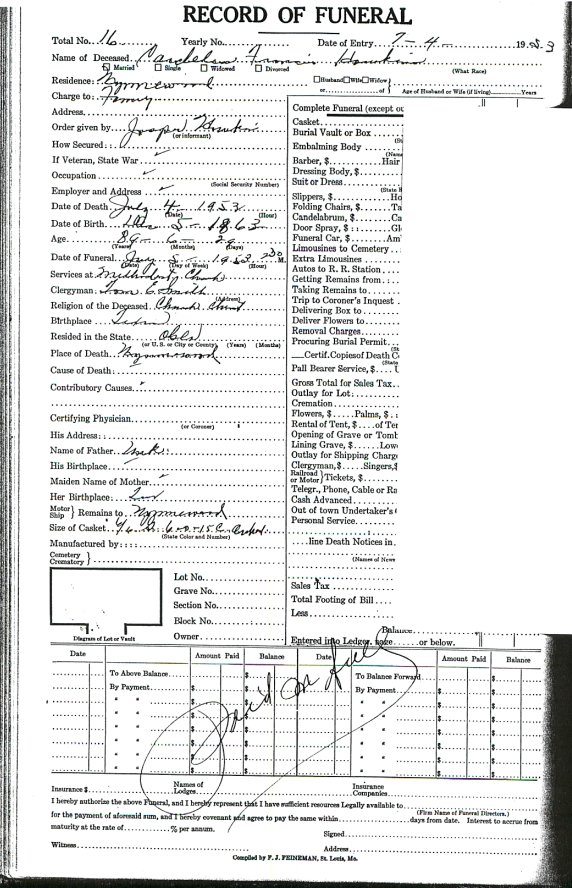 RECORD OF FUNERAL
Total No. 16 Yearly No. Date of Entry 7-4- 1953
Name of Deceased Francis
Married Single Widowed Divorced (What Race)
Residence: Wynnewood Husband Wife Widow
Charge to: Family or of Age of Husband or Wife (if living) Years
Address
Order given by
(or informant)
How Secured
If Veteran, State War
Occupation
(Social Security Number)
Employer and Address
Date of Death July 4 1953
(Date) (Hour)
Date of Birth 5 1863
Age 89 6
(Years) (Months) (Days)
Date of Funeral July 5 1953 2:30
(Date) (Day of Week) (Hour)
Services at Methodist Church
Clergyman Tom C. Smith
(Address)
Religion of the Deceased Church Christ
Birthplace
Resided in the State Okla
(or U. S. or City or County) (Years) (Months)
Place of Death Wynnewood
Cause of Death
Contributory Causes
Certifying Physician
(or Coroner)
His Address
Name of Father
His Birthplace
Maiden Name of Mother
Her Birthplace
Motor Ship } Remains to Wynnewood
Size of Casket
(State Color and Number)
Manufactured by
Cemetery
Crematory }
Lot No.
Grave No.
Section No.
Block No.
Diagram of Lot or Vault Owner
Complete Funeral (except ou
Casket
Burial Vault or Box
(St
Embalming Body
(Name
Barber, $ Hair
Dressing Body, $
Suit or Dress
(State S
Slippers, $ Ho
Folding Chairs, $ Ta
Candelabrum, $ Ca
Door Spray, $ Gl
Funeral Car, $ Am
Limousines to Cemetery
Extra Limousines
Autos to R. R. Station
Getting Remains from
Taking Remains to
Trip to Coroner's Inquest
Delivering Box to
Deliver Flowers to
Removal Charges
Procuring Burial Permit
(St
Certif. Copies of Death C
(State
Pall Bearer Service, $
Gross Total for Sales Tax
Outlay for Lot
Cremation
Flowers, $ Palms, $
Rental of Tent, $ of Ter
Opening of Grave or Tomb
Lining Grave, $ Low
Outlay for Shipping Charge
Clergyman, $ Singers, $
Railroad or Motor } Tickets, $
Telegr., Phone, Cable or Ra
Cash Advanced
Out of town Undertaker's
Personal Service
line Death Notices in
(Names of News
Sales Tax
Total Footing of Bill
Less
Balance
Entered into Ledger, page or below.
Date Amount Paid Balance Date Amount Paid Balance
To Above Balance $ To Balance Forward $
By Payment $ By Payment $
Paid in full
Insurance $ Names of Lodges Insurance Companies
I hereby authorize the above Funeral, and I hereby represent that I have sufficient resources Legally available to
(Firm Name of Funeral Directors.)
for the payment of aforesaid sum, and I hereby covenant and agree to pay the same within days from date. Interest to accrue from
maturity at the rate of % per annum. Signed
Witness Address
Compiled by F. J. FEINEMAN, St. Louis, Mo.